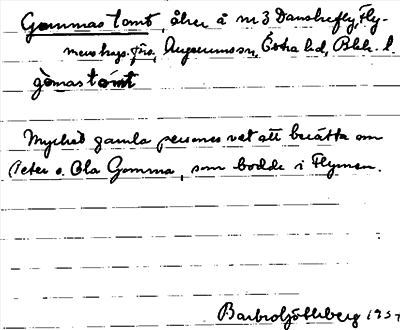 Gommas tomt, åker å nr 3 Danskefly, Fly-
mens hags. förs., Augerums sn, Östra hd, Blek. l.
gòmas tomt
Mycket gamla personer vet att berätta om
Peter o. Ola Gomma, som bodde i Flymen.
Barbro Göthberg 195